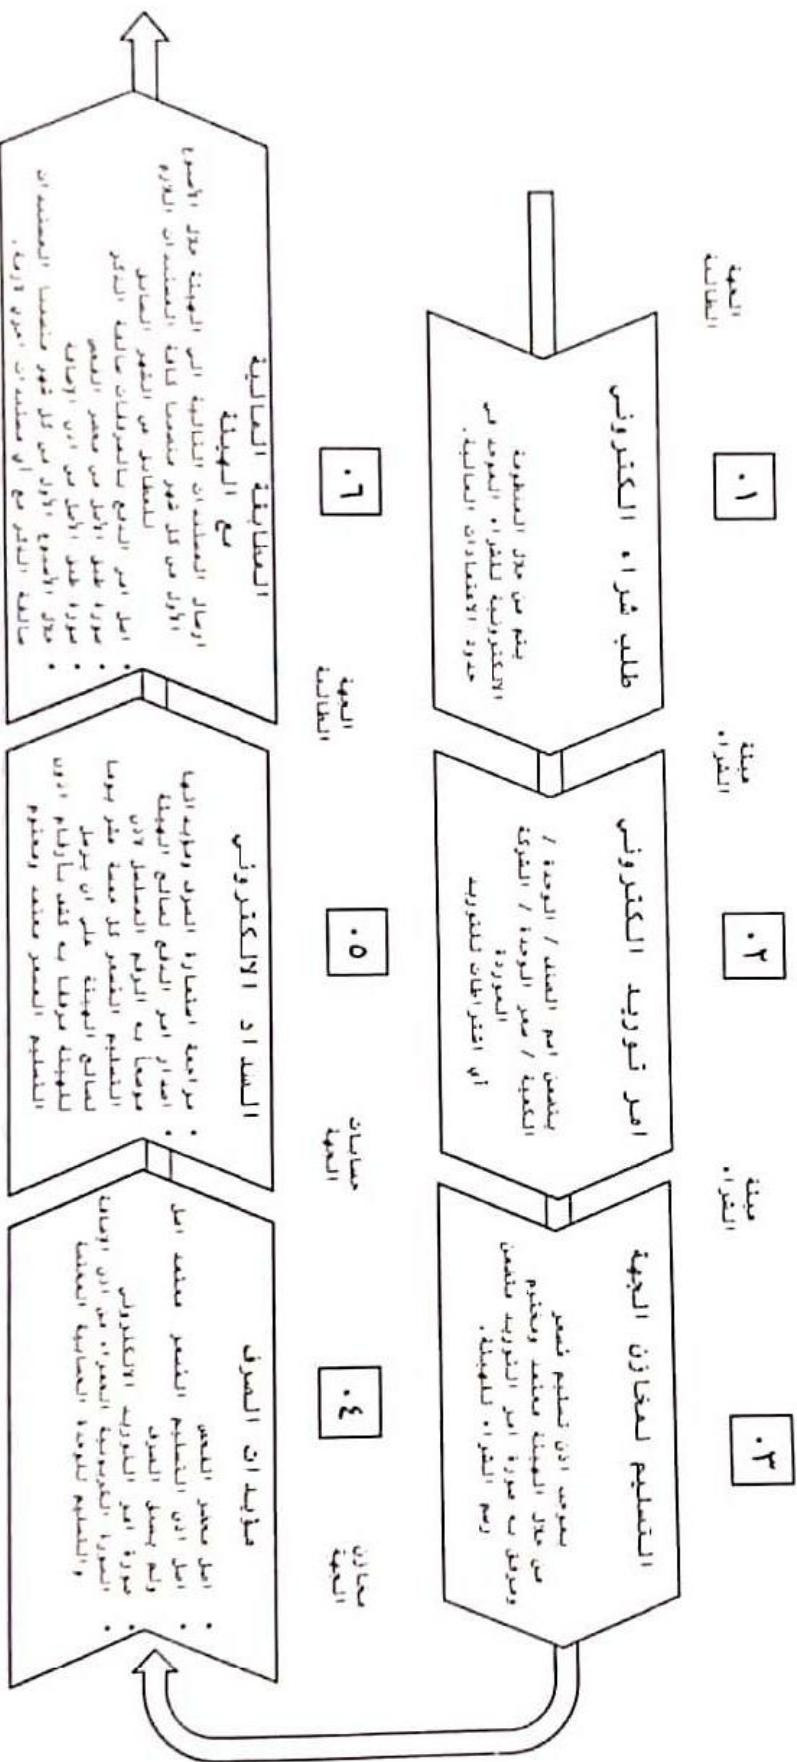 الجهة
الطالبة
٠١
طلب شراء الكترونى
يتم من خلال المنظومة
الالكترونية للشراء الموحد فى
حدود الاعتمادات المالية.
هيئة
الشراء
٠٢
امر توريد الكترونى
يتضمن اسم الصنف / الوحدة /
الكمية / سعر الوحدة / الشركة
الموردة
أي اشتراطات للتوريد
هيئة
الشراء
٠٣
التسليم لمخازن الجهة
بموجب اذن تسليم مسعر
من خلال الهيئة معتمد ومختوم
ومرفق به صورة امر التوريد متضمن
رسم الشراء للهيئة.
مخازن
الجهة
٠٤
مؤيدات الصرف
• اصل محضر الفحص
• اصل اذن التسليم المسعر معتمد اصل
ولم يسبق الصرف
• صورة امر التوريد الالكترونى
• الصورة الكربونية الحمراء من اذن الإضافة
والتسليم للوحدة الحسابية المختصة
حسابات
الجهة
٠٥
السداد الالكترونى
• مراجعة استمارة الصرف ومؤيداتها
• اصدار امر الدفع لصالح الهيئة
موضحاً به الرقم المسلسل لاذن
التسليم المسعر كل خمسة عشر يوما
لصالح الهيئة على ان يرسل
للهيئة مرفقا به كشف بأرقام اذون
التسليم المسعر معتمد ومختوم
الجهة
الطالبة
٠٦
المطابقة المالية
مع
الهيئة
ارسال المستندات التالية الى الهيئة خلال الأسبوع
الأول من كل شهر متضمنا كافة المستندات اللازم
للتطابق عن الشهر السابق
• اصل امر الدفع بالمرفقات سالفة الذكر
• صورة طبق الأصل من محضر الفحص
• صورة طبق الأصل من اذن الإضافة
• خلال الأسبوع الأول من كل شهر متضمنا المستندات
سالفة الذكر مع أي مستندات اخرى لازمة.